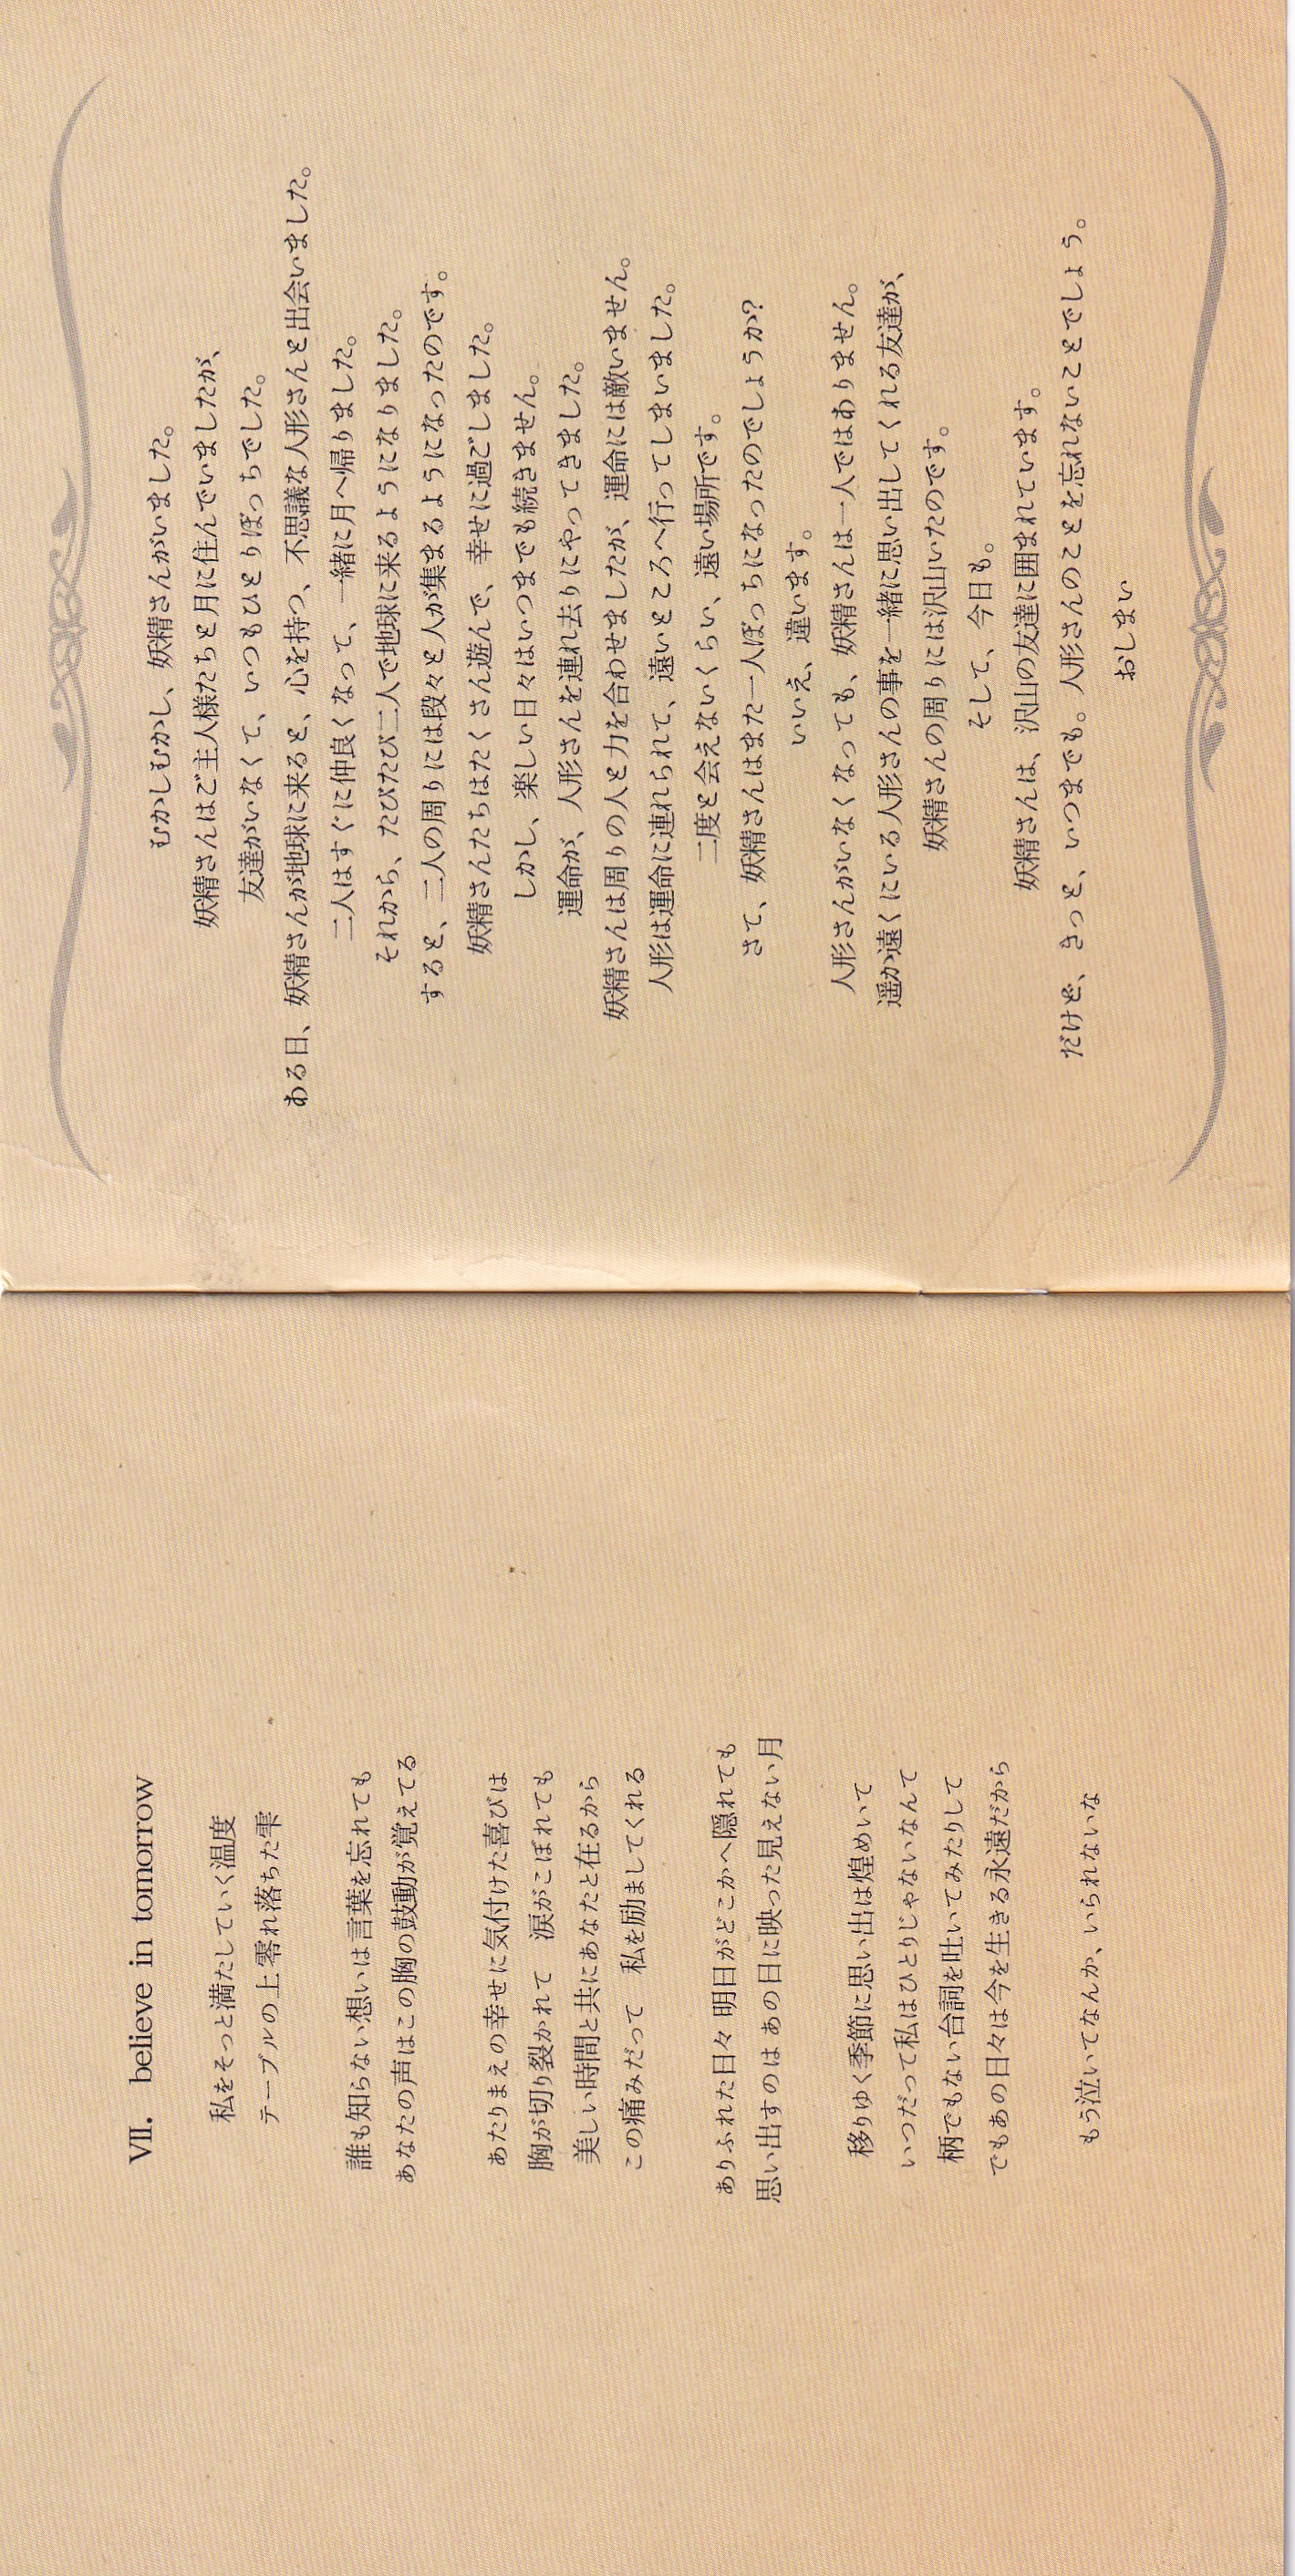 VII. believe in tomorrow
私をそっと満たしていく温度
テーブルの上 零れ落ちた雫
誰も知らない想いは言葉を忘れても
あなたの声はこの胸の鼓動が覚えてる
あたりまえの幸せに気付けた喜びは
胸が切り裂かれて　涙がこぼれても
美しい時間と共にあなたと在るから
この痛みだって　私を励ましてくれる
ありふれた日々 明日がどこかへ隠れても
思い出すのは あの日に映った見えない月
移りゆく季節に思い出は煌めいて
いつだって私はひとりじゃないなんて
柄でもない台詞を吐いてみたりして
でもあの日々は今を生きる永遠だから
もう泣いてなんか、いられないな
むかしむかし、妖精さんがいました。
妖精さんはご主人様たちと月に住んでいましたが、
友達がいなくて、いつもひとりぼっちでした。
ある日、妖精さんが地球に来ると、心を持つ、不思議な人形さんと出会いました。
二人はすぐに仲良くなって、一緒に月へ帰りました。
それから、たびたび二人で地球に来るようになりました。
すると、二人の周りには段々と人が集まるようになったのです。
妖精さんたちはたくさん遊んで、幸せに過ごしました。
しかし、楽しい日々はいつまでも続きません。
運命が、人形さんを連れ去りにやってきました。
妖精さんは周りの人と力を合わせましたが、運命には敵いません。
人形は運命に連れられて、遠いところへ行ってしまいました。
二度と会えないくらい、遠い場所です。
さて、妖精さんはまた一人ぼっちになったのでしょうか?
いいえ、違います。
人形さんがいなくなっても、妖精さんは一人ではありません。
遥か遠くにいる人形さんの事を一緒に思い出してくれる友達が、
妖精さんの周りには沢山いたのです。
そして、今日も。
妖精さんは、沢山の友達に囲まれています。
だけど、きっと、いつまでも。人形さんのことを忘れないことでしょう。
おしまい